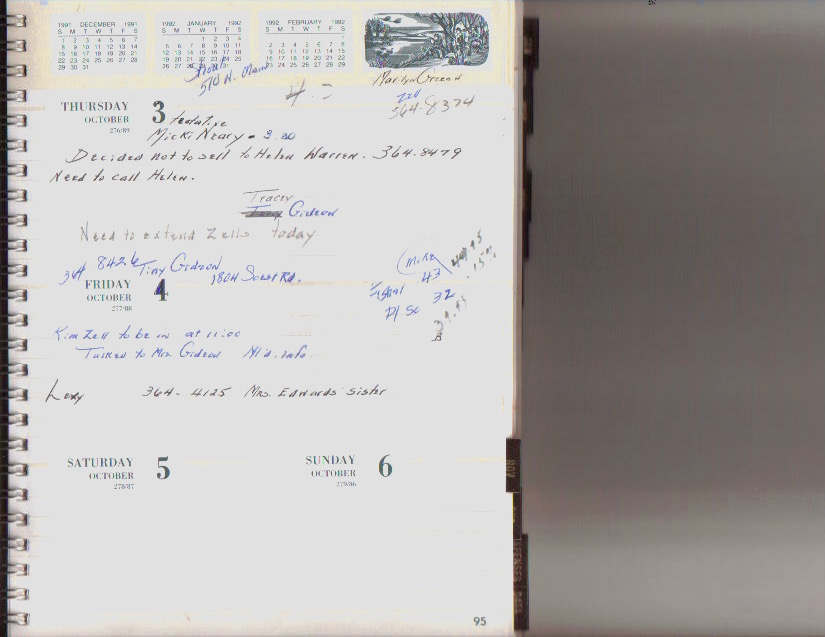 1991 DECEMBER 1991
S M T W T F S
1 2 3 4 5 6 7
8 9 10 11 12 13 14
15 16 17 18 19 20 21
22 23 24 25 26 27 28
29 30 31
1992 JANUARY 1992
S M T W T F S
1 2 3 4
5 6 7 8 9 10 11
12 13 14 15 16 17 18
19 20 21 22 23 24 25
26 27 28 29 30 31
1992 FEBRUARY 1992
S M T W T F S
1
2 3 4 5 6 7 8
9 10 11 12 13 14 15
16 17 18 19 20 21 22
23 24 25 26 27 28 29
N. Main
Marilyn Green
Zell
364-8374
THURSDAY 3
OCTOBER
276/89
tentative
Micki Neary - 3:30
Decided not to sell to Helen Warren. 364-8479
Need to call Helen.
Tracey
Gideon
Need to extend Zells today
364 8426 Tiny Gideon 1804 Soest Rd.
Mike
43
32
FRIDAY 4
OCTOBER
277/88
Kim Zell to be in at 11:00
Talked to Mrs Gideon info.
364-4125 Mrs. Edwards Sister
SATURDAY 5
OCTOBER
278/87
SUNDAY 6
OCTOBER
279/86
NOV
95